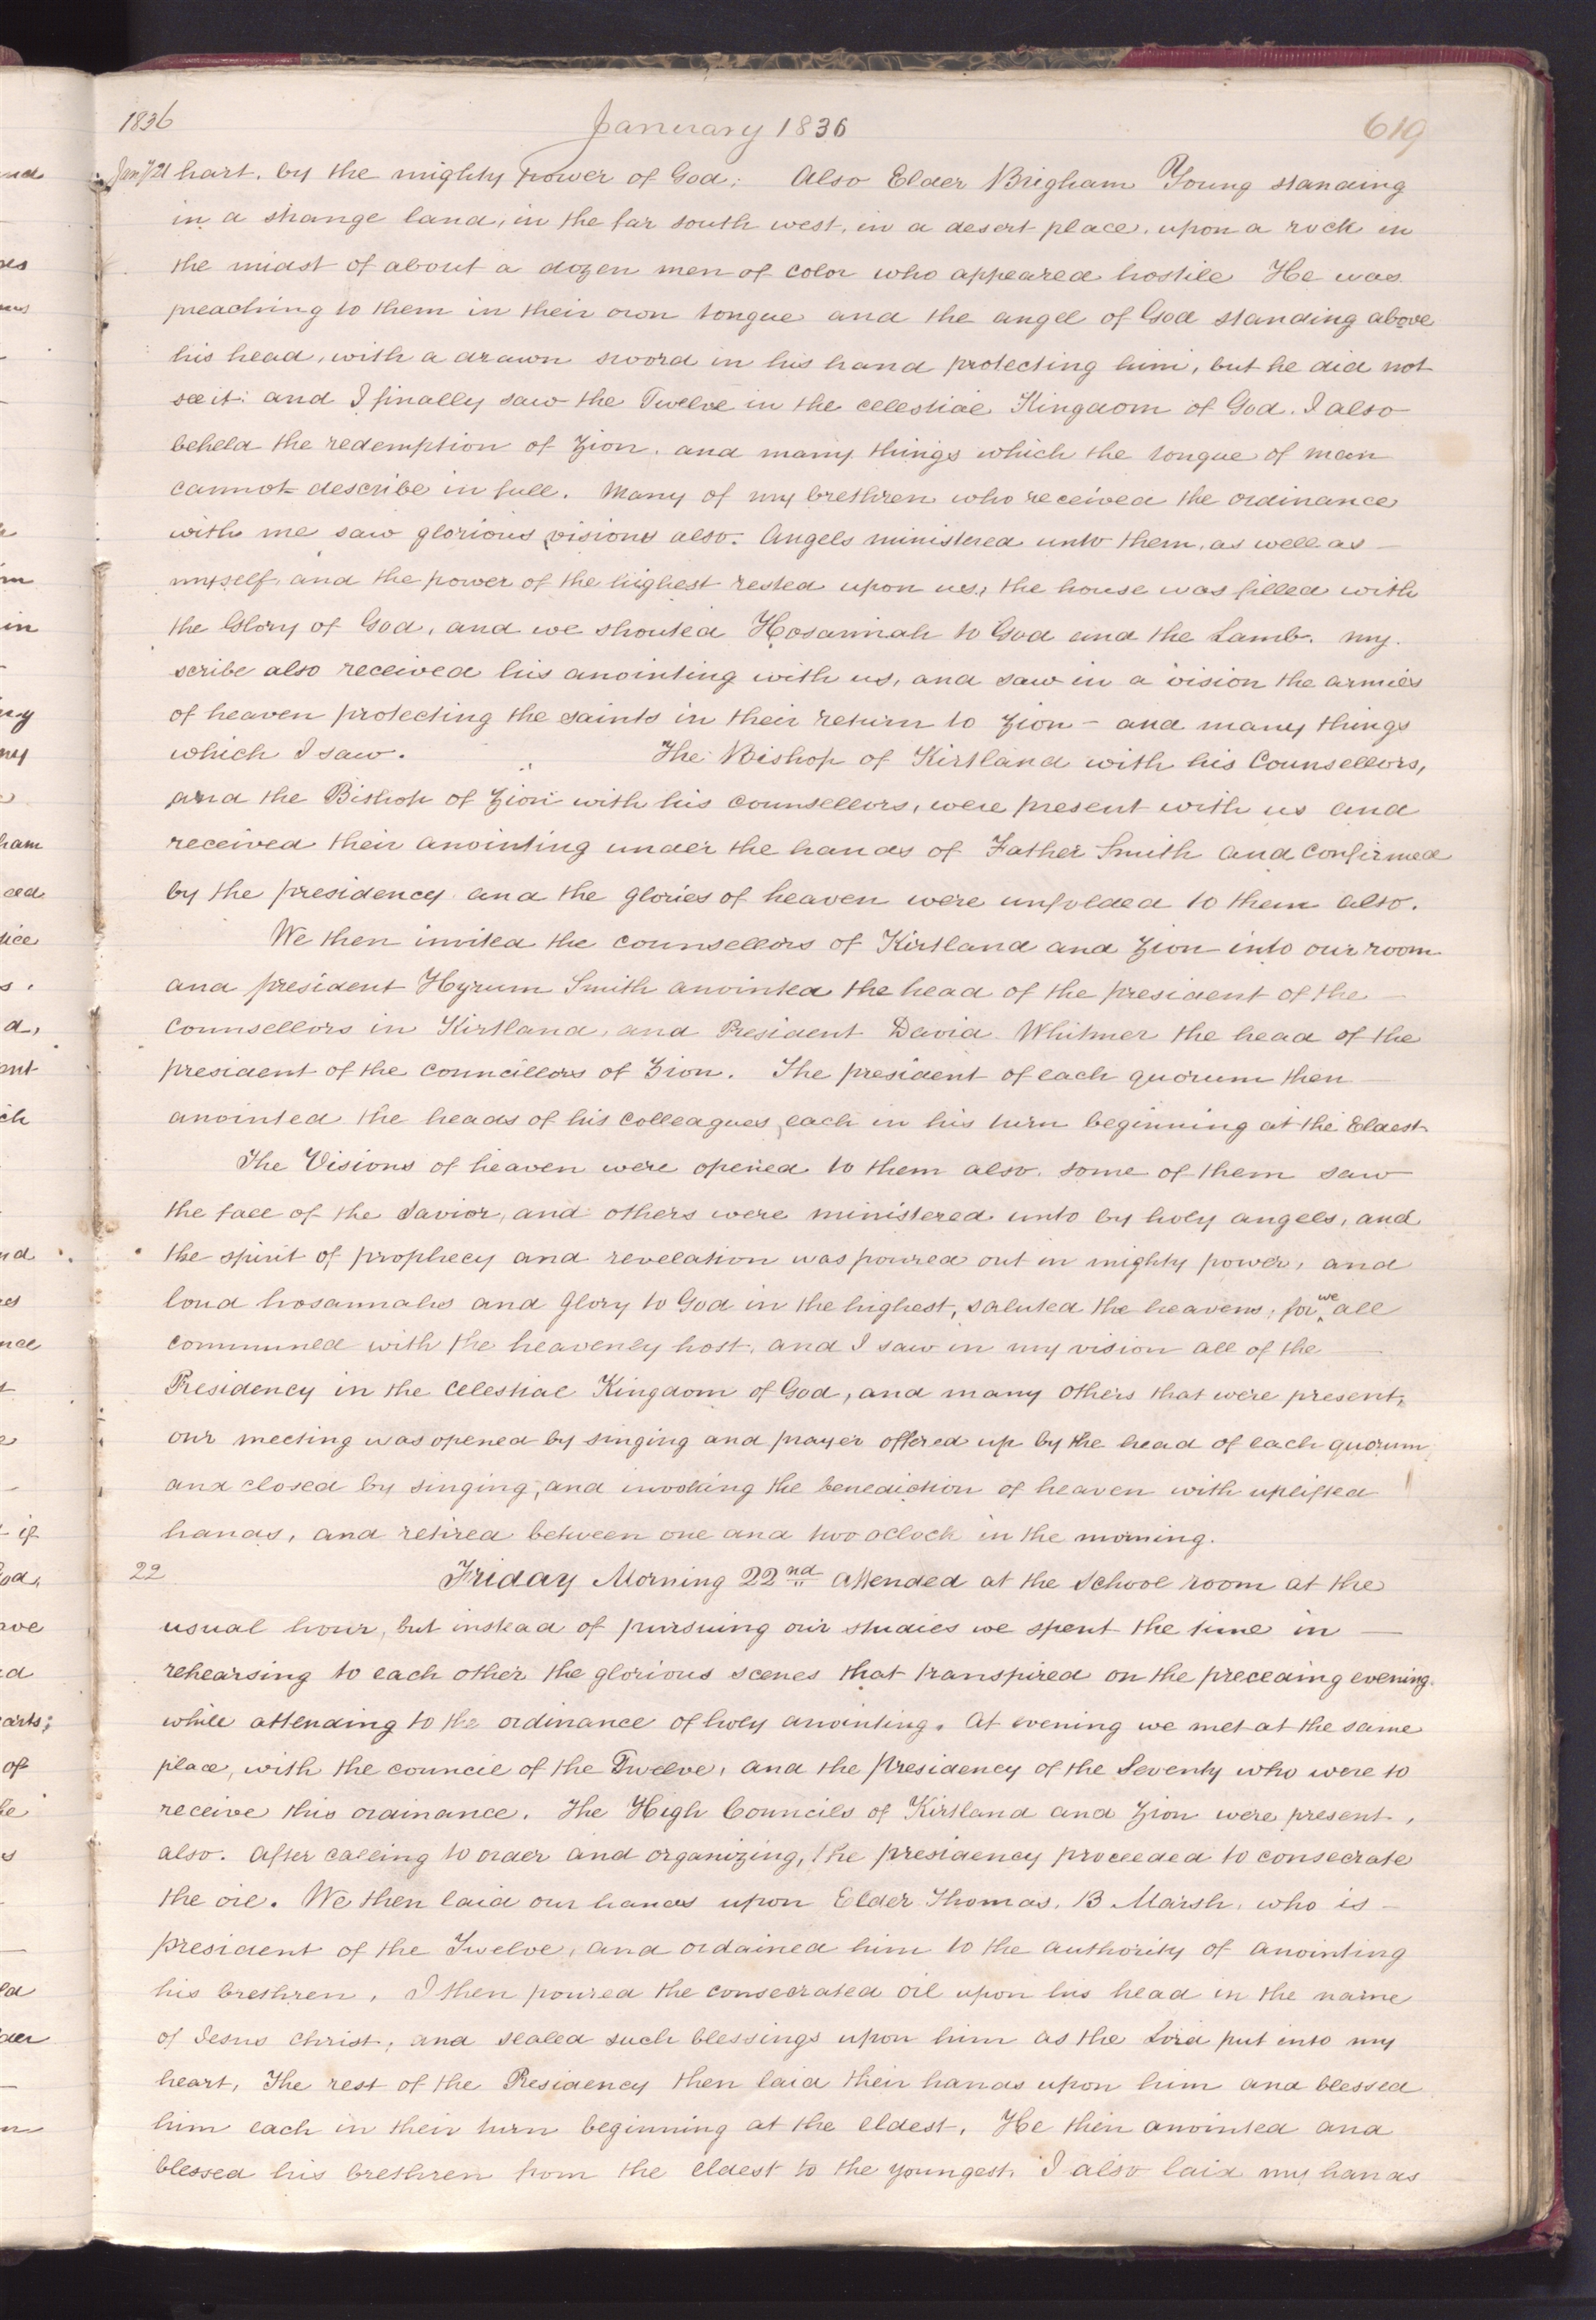 1836 January 1836 619
Jany 21 hart. by the mighty power of God; Also Elder Brigham Young standing
in a strange land, in the far south west, in a desert place, upon a rock in
the midst of about a dozen men of color who appeared hostile He was
preaching to them in their own tongue and the angel of God standing above
his head, with a drawn sword in his hand protecting him, but he did not
see it: and I finally saw the Twelve in the celestial Kingdom of God. I also
beheld the redemption of Zion, and many things which the tongue of man
cannot describe in full. Many of my brethren who received the ordinance
with me saw glorious visions also. Angels ministered unto them, as well as
myself, and the power of the highest rested upon us, the house was filled with
the Glory of God, and we shouted Hosannah to God and the Lamb. my
scribe also received his anointing with us, and saw in a vision the armies
of heaven protecting the saints in their return to Zion - and many things
which I saw. The Bishop of Kirtland with his Counsellors,
and the Bishop of Zion with his counsellors, were present with us and
received their anointing under the hands of Father Smith and confirmed
by the presidency and the glories of heaven were unfolded to them also.
We then invited the counsellors of Kirtland and Zion into our room
and president Hyrum Smith anointed the head of the president of the
Counsellors in Kirtland, and President David Whitmer the head of the
president of the councillors of Zion. The president of each quorum then
anointed the heads of his colleagues, each in his turn beginning at the Eldest
The Visions of heaven were opened to them also. some of them saw
the face of the Savior, and others were ministered unto by holy angels, and
the spirit of prophecy and revelation was poured out in mighty power, and
loud hosannahs and glory to God in the highest, saluted the heavens, for we all
communed with the heavenly host, and I saw in my vision all of the
Presidency in the Celestial Kingdom of God, and many others that were present,
our meeting was opened by singing and prayer offered up by the head of each quorum
and closed by singing, and invoking the benediction of heaven with uplifted
hands, and retired between one and two oclock in the morning.
22 Friday Morning 22nd attended at the School room at the
usual hour, but instead of pursuing our studies we spent the time in
rehearsing to each other the glorious scenes that transpired on the preceding evening.
while attending to the ordinance of holy anointing. At evening we met at the same
place, with the council of the Twelve, and the Presidency of the Seventy who were to
receive this ordinance. The High Councils of Kirtland and Zion were present,
also. After calling to order and organizing, the presidency proceeded to consecrate
the oil. We then laid our hands upon Elder Thomas. B Marsh, who is
president of the Twelve, and ordained him to the authority of anointing
his brethren, I then poured the consecrated oil upon his head in the name
of Jesus Christ, and sealed such blessings upon him as the Lord put into my
heart, The rest of the Presidency then laid their hands upon him and blessed
him each in their turn beginning at the eldest. He then anointed and
blessed his brethren from the eldest to the youngest, I also laid my hands